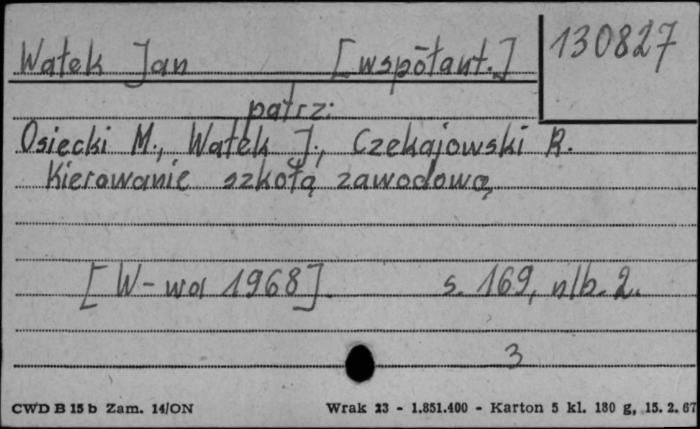 Wałek Jan [współaut.] 130827
patrz:
Osiecki M., Wałek J., Czekajowski R.
Kierowanie szkołą zawodową
[W-wa 1968]. s. 169, nlb. 2.
3
CWD B 15 b Zam. 14/ON Wrak 23 - 1.851.400 - Karton 5 kl. 180 g, 15. 2. 67